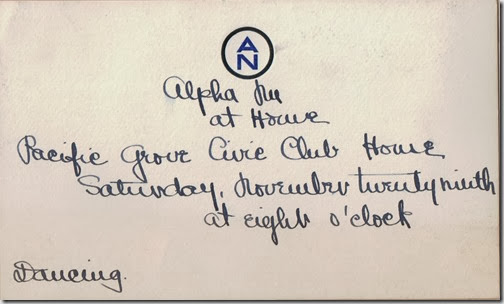 A
N
Alpha Nu
at Home
Pacific Grove Civic Club Home
Saturday, November twenty ninth
at eight o'clock
Dancing.